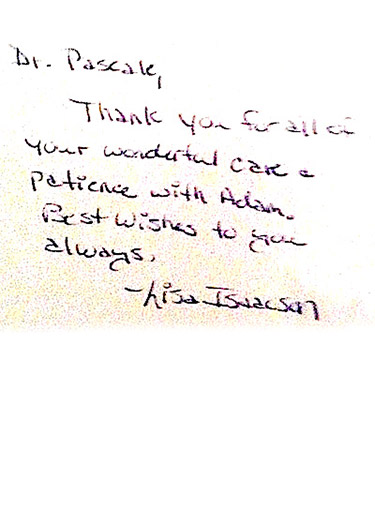 Dr. Pascale,
Thank you for all of
your wonderful care &
patience with Adam.
Best Wishes to you
always.
-Lisa Isaacson